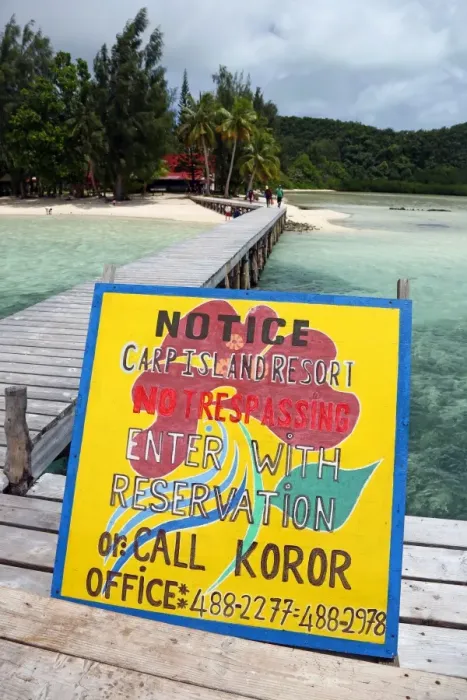 NOTICE
CARP ISLAND RESORT
NO TRESPASSING
ENTER WITH
RESERVATION
or: CALL KOROR
OFFICE: 488-2277=488-2978